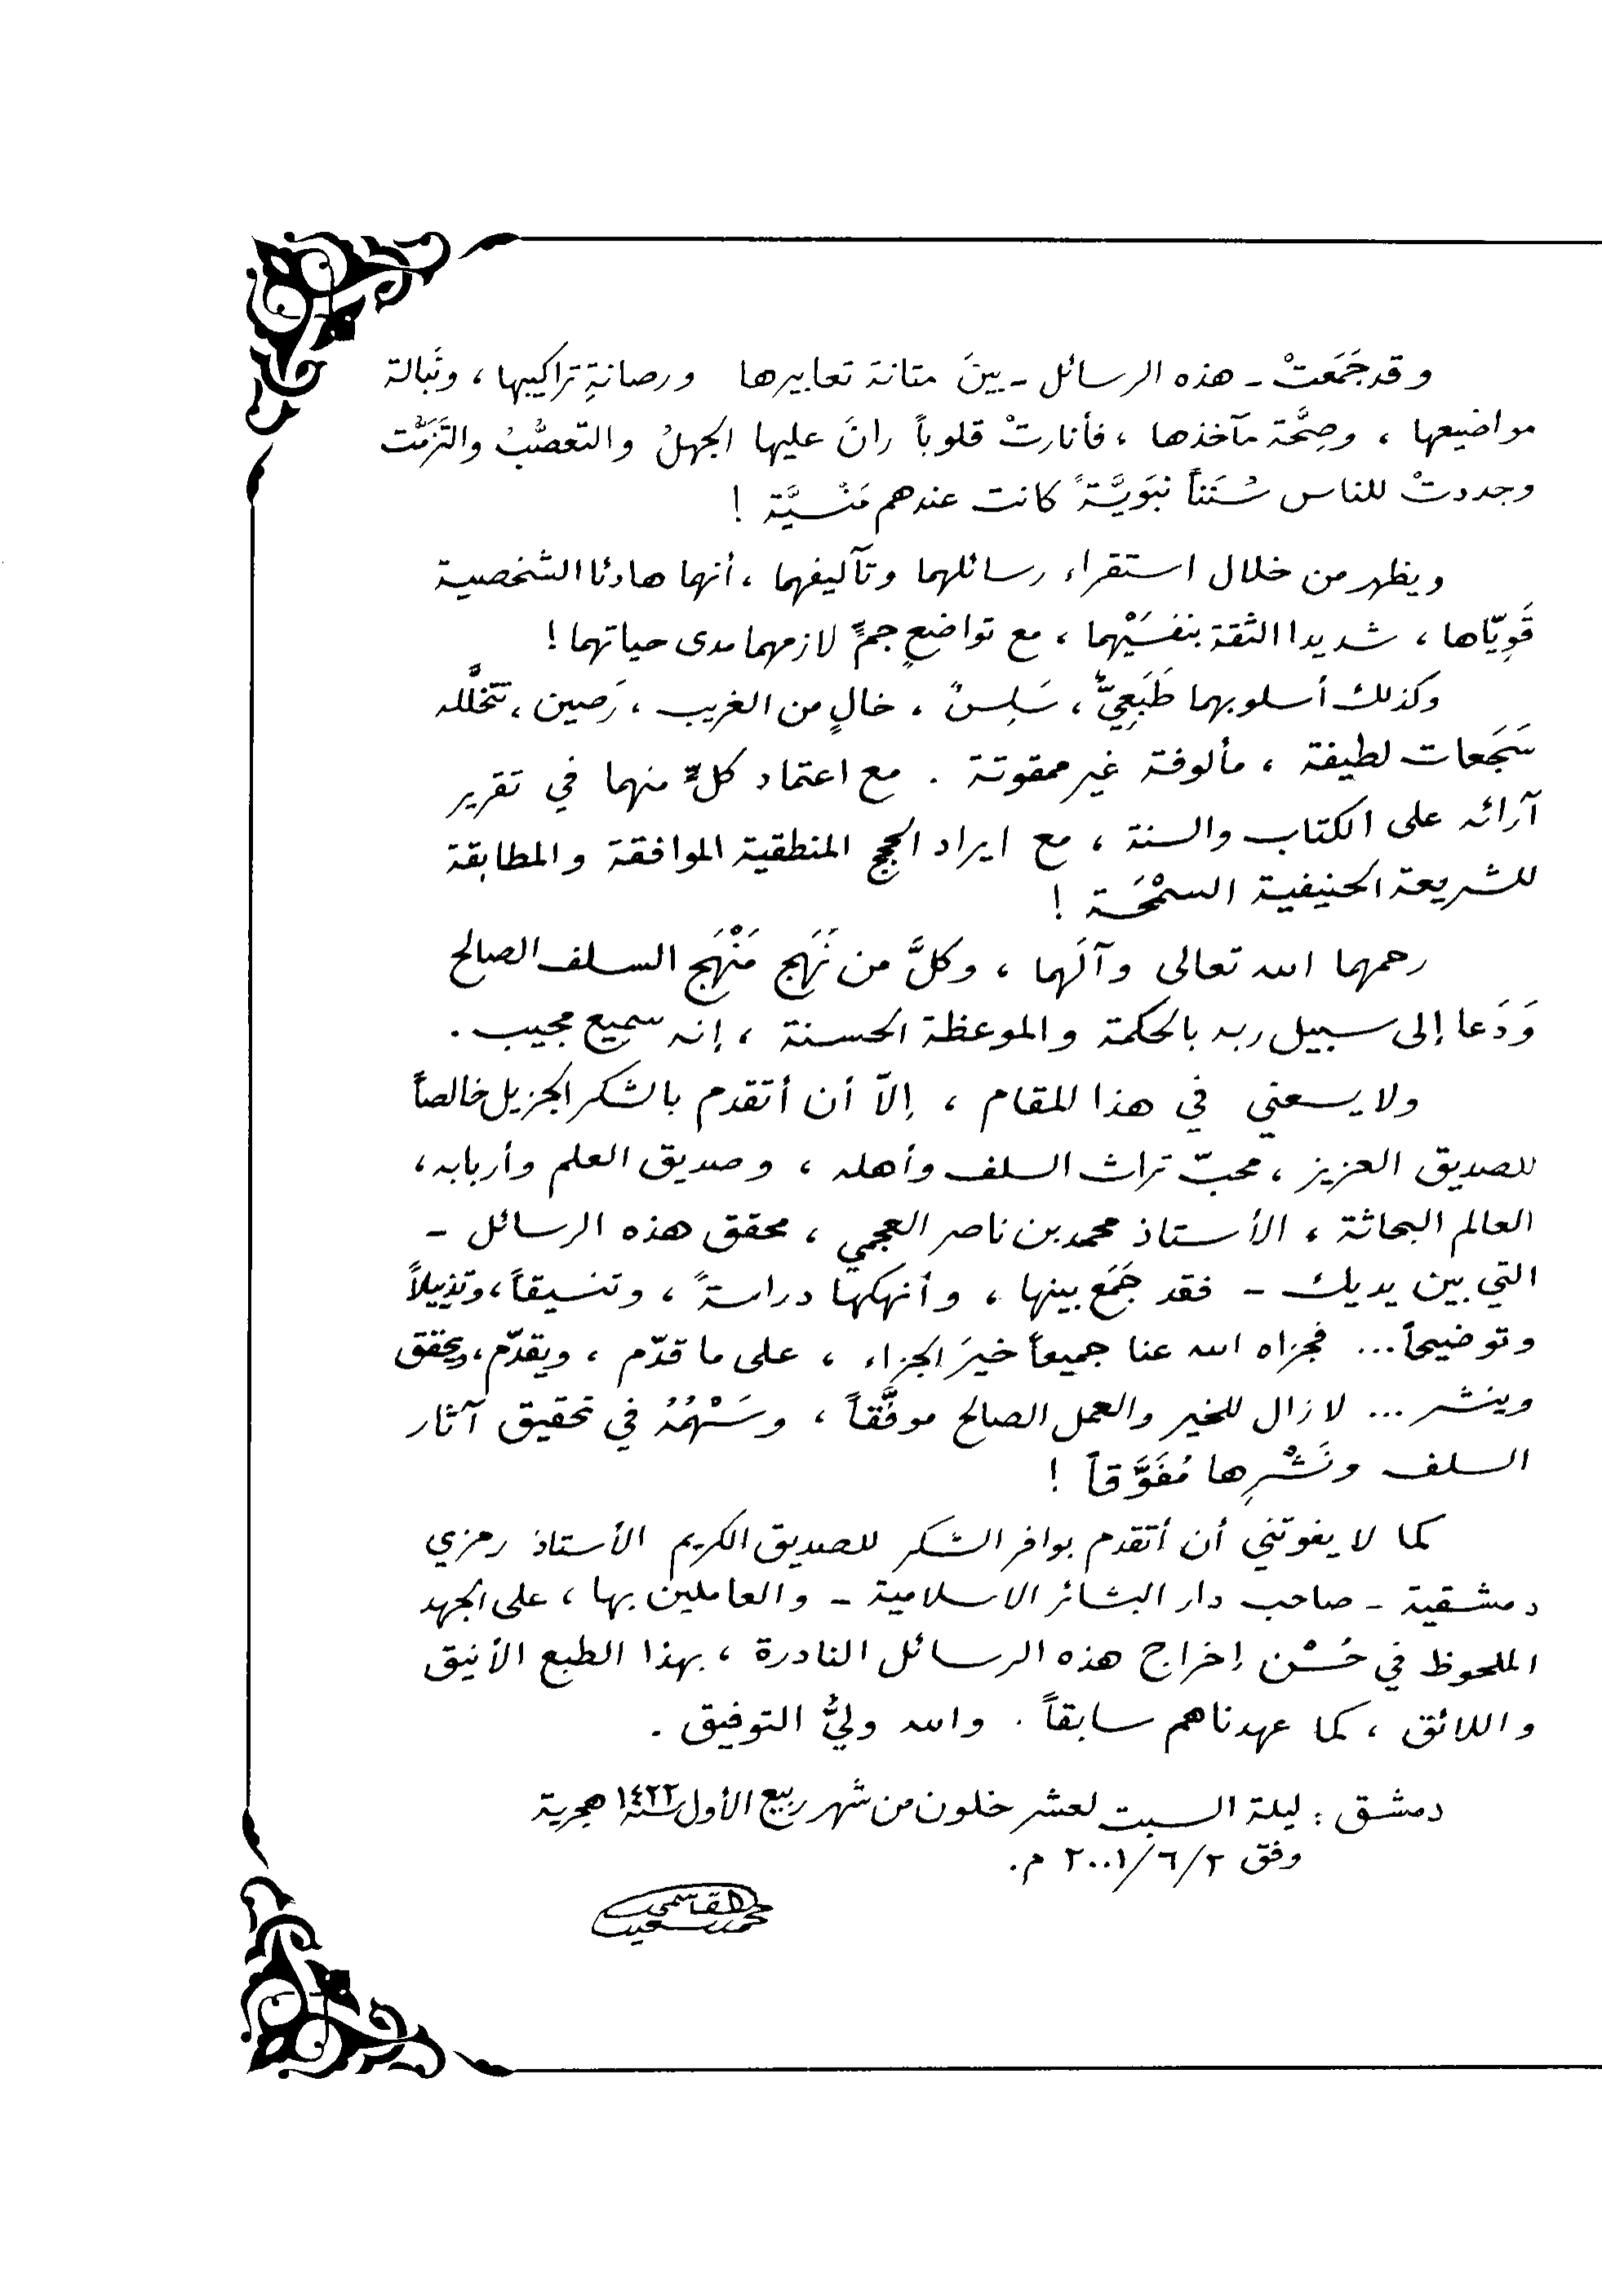 وقد جَمَعَتْ ـ هذه الرسائل ـ بينَ متانة تعابيرها ورصانةِ تراكيبها ، ونَبالة
مواضيعها ، وصِحَّة مآخذها ، فأنارتْ قلوباً رانَ عليها الجهلُ والتعصُّبُ والتَّزَمُّت
وجددتْ للناس سُنَناً نبَويَّةً كانت عندهم مَنْسيَّة !
ويظهر من خلال استقراء رسائلهما وتآليفهما ، أنهما هادئا الشخصية
قَوِيّاها ، شديدا الثقة بنفسَيْهما ، مع تواضعٍ جمٍّ لازمهما مدى حياتهما !
وكذلك أسلوبهما طَبَعِيٌّ ، سَلِسٌ ، خالٍ من الغريب ، رَصين ، تتخلَّله
سَجَعات لطيفة ، مألوفة غير ممقوتة . مع اعتماد كلٍّ منهما في تقرير
آرائه على الكتاب والسنة ، مع ايراد الحجج المنطقية الموافقة والمطابقة
للشريعة الحنيفية السمْحَة !
رحمهما الله تعالى وآلَهما ، وكلَّ من نَهَج مَنْهَج السلف الصالح
وَدَعا إلى سبيل ربه بالحكمة والموعظة الحسنة ، إنه سميع مجيب .
ولا يسعني في هذا المقام ، إلاّ أن أتقدم بالشكر الجزيل خالصاً
للصديق العزيز ، محبّ تراث السلف وأهله ، وصديق العلم وأربابه ،
العالم البحاثة ، الأستاذ محمد بن ناصر العجمي ، محقق هذه الرسائل ـ
التي بين يديك ـ فقد جَمَع بينها ، وأنهكها دراسةً ، وتنسيقاً ، وتذييلاً
وتوضيحاً... فجزاه الله عنا جميعاً خيرَ الجزاء ، على ما قدّم ، ويقدّم ، ويحقق
وينشر ... لازال للخير والعمل الصالح موفَّقاً ، وسَهْمُهُ في تحقيق آثار
السلف ونَشْرِها مُفَوَّقاً !
كما لا يفوتني أن أتقدم بوافر الشكر للصديق الكريم الأستاذ رمزي
دمشقية ـ صاحب دار البشائر الاسلامية ـ والعاملين بها ، على الجهد
الملحوظ في حُسْن إخراج هذه الرسائل النادرة ، بهذا الطبع الأنيق
واللائق ، كما عهدناهم سابقاً . والله وليُّ التوفيق .
دمشق : ليلة السبت لعشر خلون من شهر ربيع الأول سنة ١٤٢٢ هجرية
وفق ٢/ ٦/ ٢٠٠١ م .
محمد سعيد القاسمي